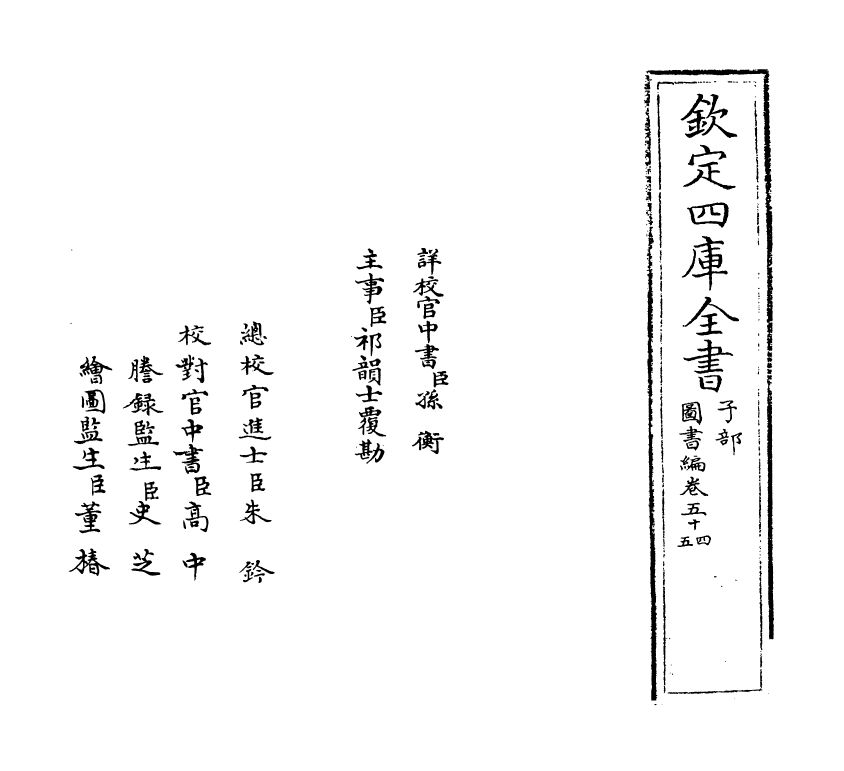 欽定四庫全書
子部
圖書編卷五十四
五
詳校官中書臣孫衡
主事臣祁韻士覆勘
總校官進士臣朱鈐
校對官中書臣高中
謄録監生臣史芝
繪圖監生臣董椿